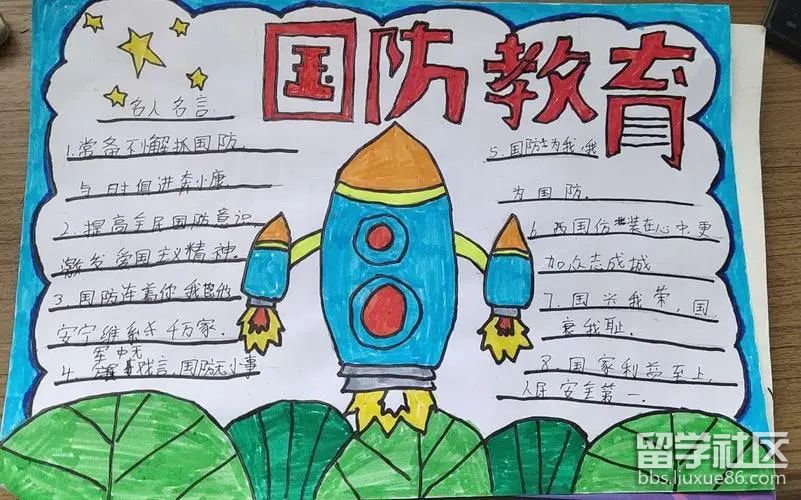 国防教育
名人名言.
1.常备不懈抓国防.
与时俱进奔小康.
2.提高全民国防意识
激发爱国主义精神.
3 国防连着你我他
安宁维系千万家.
军中无
4. 戏言,国防无小事
5.国防为我,我
为国防.
6. 国防装在心中,更
加众志成城
7.国兴我荣,国
衰我耻.
8.国家利益至上,
人民安全第一.
留学社区
bbs.liuxue86.com